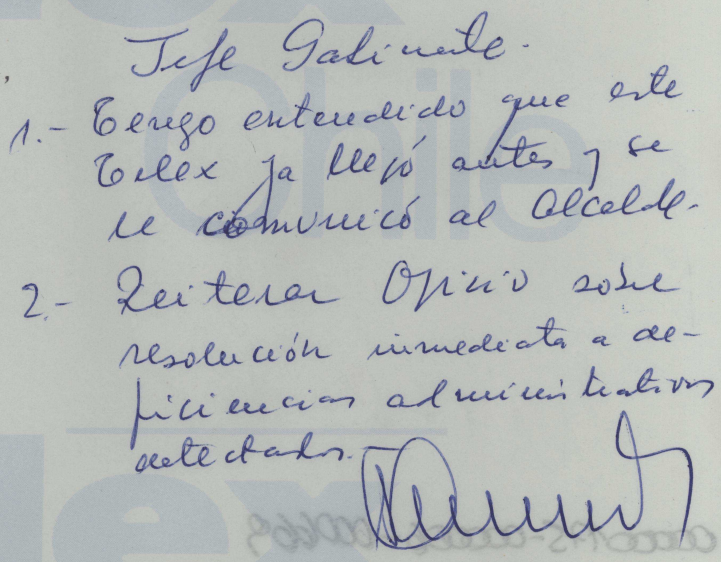 Jefe Gabinete.
1.- Tengo entendido que este
Telex ya llegó antes y se
le comunicó al Alcalde.
2.- Reiterar Oficio sobre
resolución inmediata a de-
ficiencias administrativas
detectadas.-
Chile